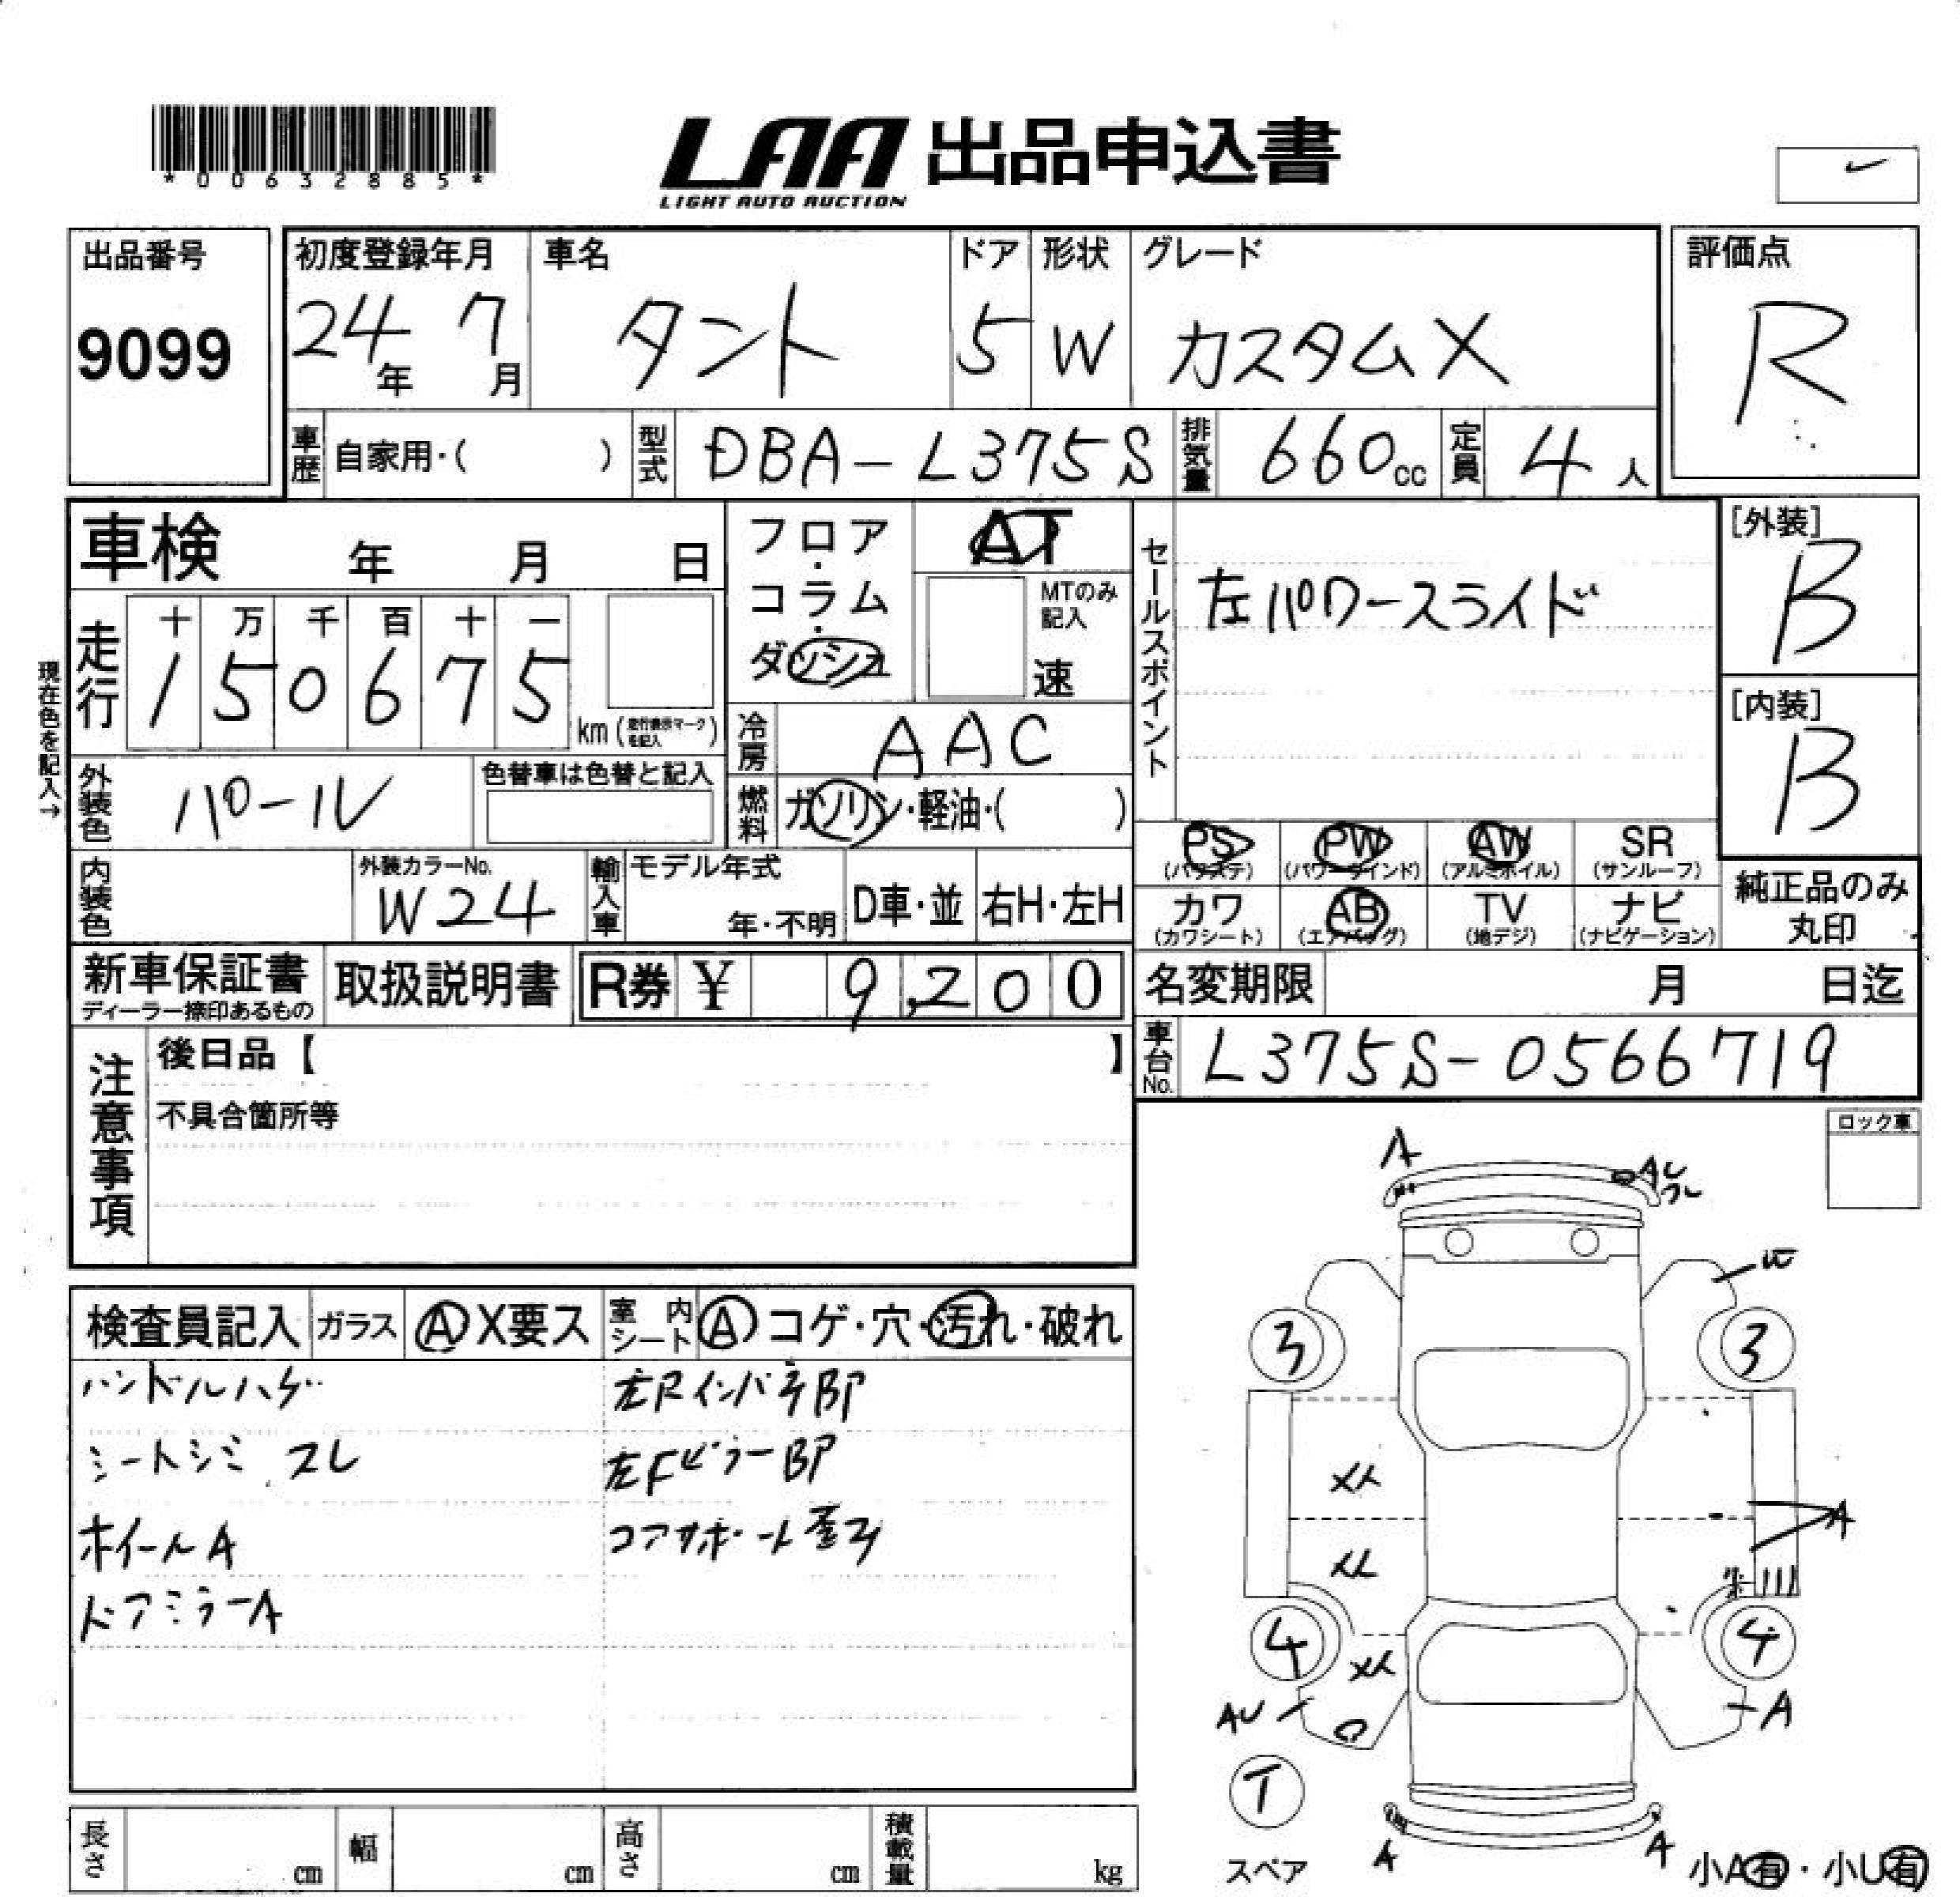 *00632885*
LAA 出品申込書
LIGHT AUTO AUCTION
出品番号
9099
初度登録年月
24年 7月
車名
タント
ドア
5
形状
W
グレード
カスタムX
評価点
R
車歴 自家用・( )
型式 DBA-L375S
排気量 660cc
定員 4人
車検 年 月 日
フロア・コラム・ダッシュ
AT
MTのみ記入
速
セールスポイント
左パワースライド
[外装]
B
[内装]
B
現在色を記入→
走行
十 万 千 百 十 一
1 5 0 6 7 5
km (走行表示マークを記入)
冷房 AAC
外装色 パール
色替車は色替と記入
燃料 ガソリン・軽油・( )
PS (パワステ)
PW (パワーウインド)
AW (アルミホイル)
SR (サンルーフ)
内装色
外装カラーNo.
W24
輸入車
モデル年式
年・不明
D車・並
右H・左H
カワ (カワシート)
AB (エアバッグ)
TV (地デジ)
ナビ (ナビゲーション)
純正品のみ丸印
新車保証書
ディーラー捺印あるもの
取扱説明書
R券 ¥ 9,200
名変期限 月 日迄
注意事項
後日品【 】
不具合箇所等
車台No. L375S-0566719
ロック車
検査員記入
ガラス A X要ス
室内シート A コゲ・穴・汚れ・破れ
ハンドルハゲ
シートシミ スレ
ホイールA
ドアミラーA
左Rインパネ BP
左FピラーBP
コアサポート歪み
A
3
3
A
4
4
AU
A
T
スペア
A
A
小A有・小U有
長さ cm
幅 cm
高さ cm
積載量 kg